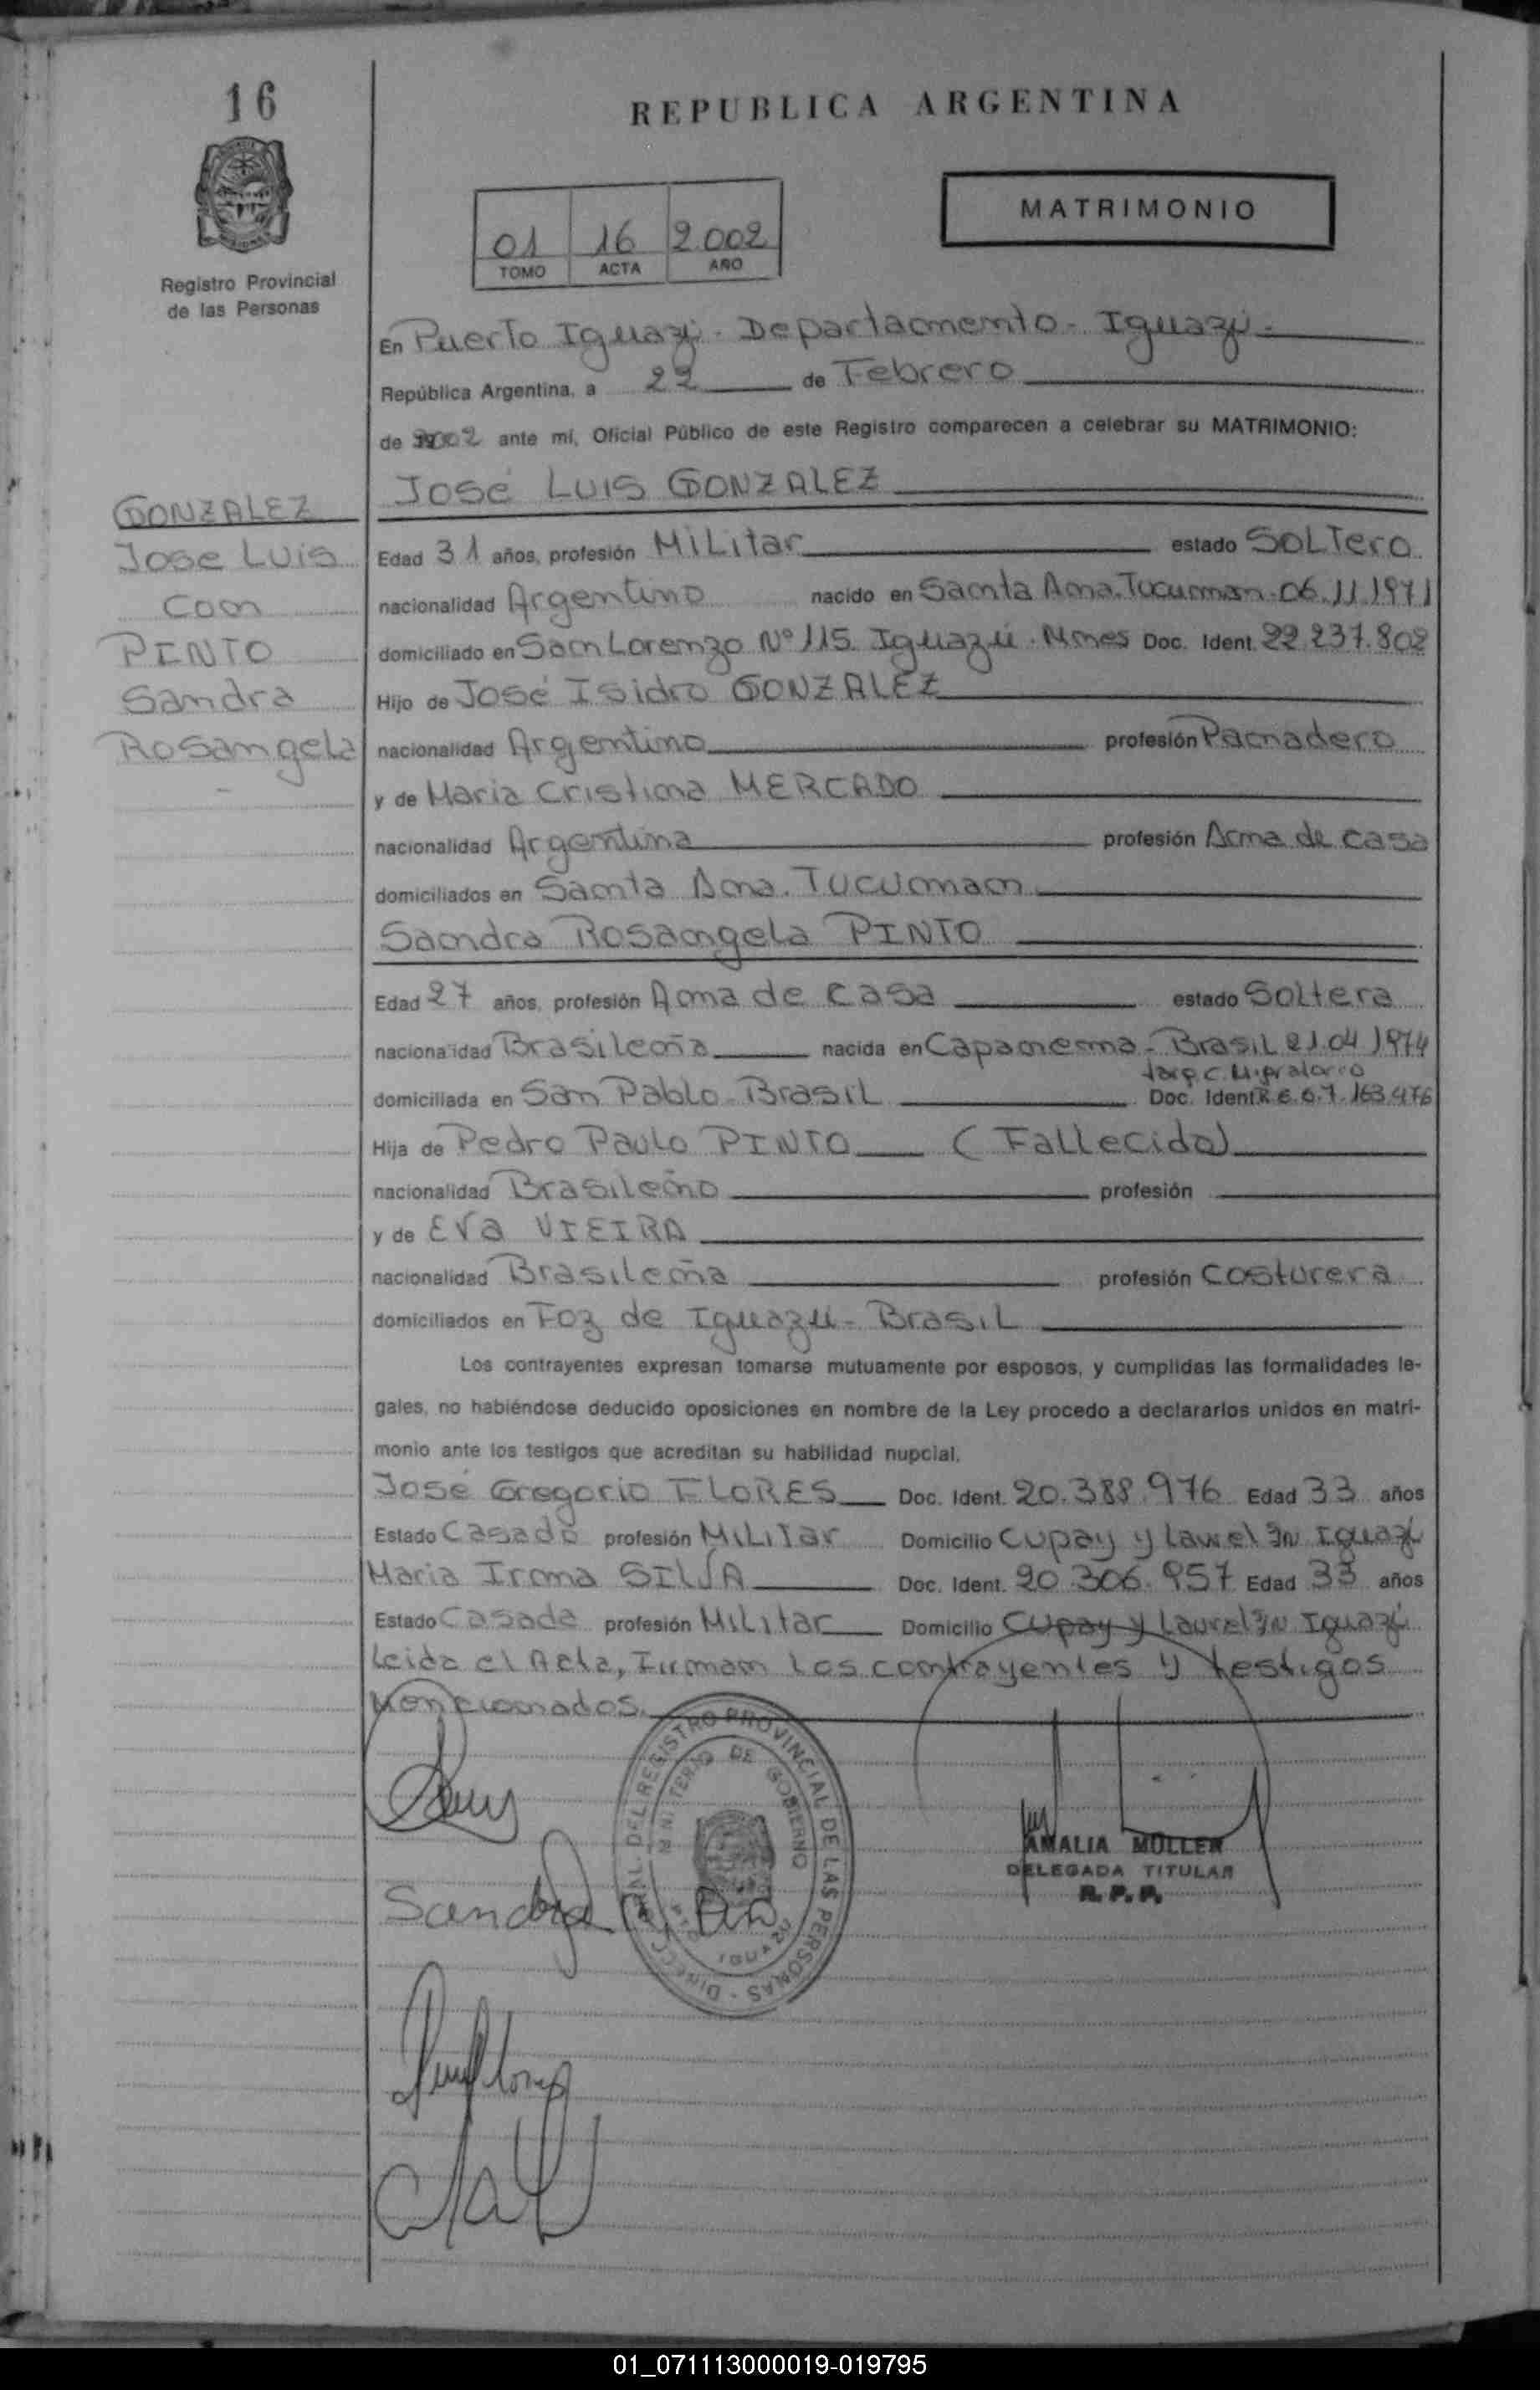 16
REPUBLICA ARGENTINA
MATRIMONIO
01 16 2.002
TOMO ACTA AÑO
Registro Provincial
de las Personas
En Puerto Iguazú - Departamento - Iguazú -
República Argentina, a 22 de Febrero
de 2002 ante mí, Oficial Público de este Registro comparecen a celebrar su MATRIMONIO:
José Luis GONZALEZ
GONZALEZ
Jose Luis
Con
PINTO
Sandra
Rosangela
Edad 31 años, profesión Militar estado Soltero
nacionalidad Argentino nacido en Santa Ana. Tucuman - 06.11.1971
domiciliado en San Lorenzo Nº 115. Iguazú - Mnes Doc. Ident. 22.237.802
Hijo de José Isidro GONZALEZ
nacionalidad Argentino profesión Panadero
y de Maria Cristina MERCADO
nacionalidad Argentina profesión Ama de casa
domiciliados en Santa Ana. Tucuman
Sandra Rosangela PINTO
Edad 27 años, profesión Ama de casa estado Soltera
nacionalidad Brasileña nacida en Capanema - Brasil 21.04.1974
domiciliada en San Pablo - Brasil Doc. Ident.
Hija de Pedro Paulo PINTO (Fallecido)
nacionalidad Brasileño profesión
y de Eva VIEIRA
nacionalidad Brasileña profesión Costurera
domiciliados en Foz de Iguazú - Brasil
Los contrayentes expresan tomarse mutuamente por esposos, y cumplidas las formalidades le-
gales, no habiéndose deducido oposiciones en nombre de la Ley procedo a declararlos unidos en matri-
monio ante los testigos que acreditan su habilidad nupcial.
José Gregorio FLORES Doc. Ident. 20.388.976 Edad 33 años
Estado Casado profesión Militar Domicilio Cupay y Laurel S/N Iguazú
Maria Irma SILVA Doc. Ident. 20.306.957 Edad 33 años
Estado Casada profesión Militar Domicilio Cupay y Laurel S/N Iguazú
Leida el Acta, Firman los contrayentes y testigos
Mencionados.
DIRECC. GRAL. DEL REGISTRO PROVINCIAL DE LAS PERSONAS
MINISTERIO DE GOBIERNO
IGUAZU
AMALIA MULLER
DELEGADA TITULAR
R. P. P.
Sandra
01_071113000019-019795